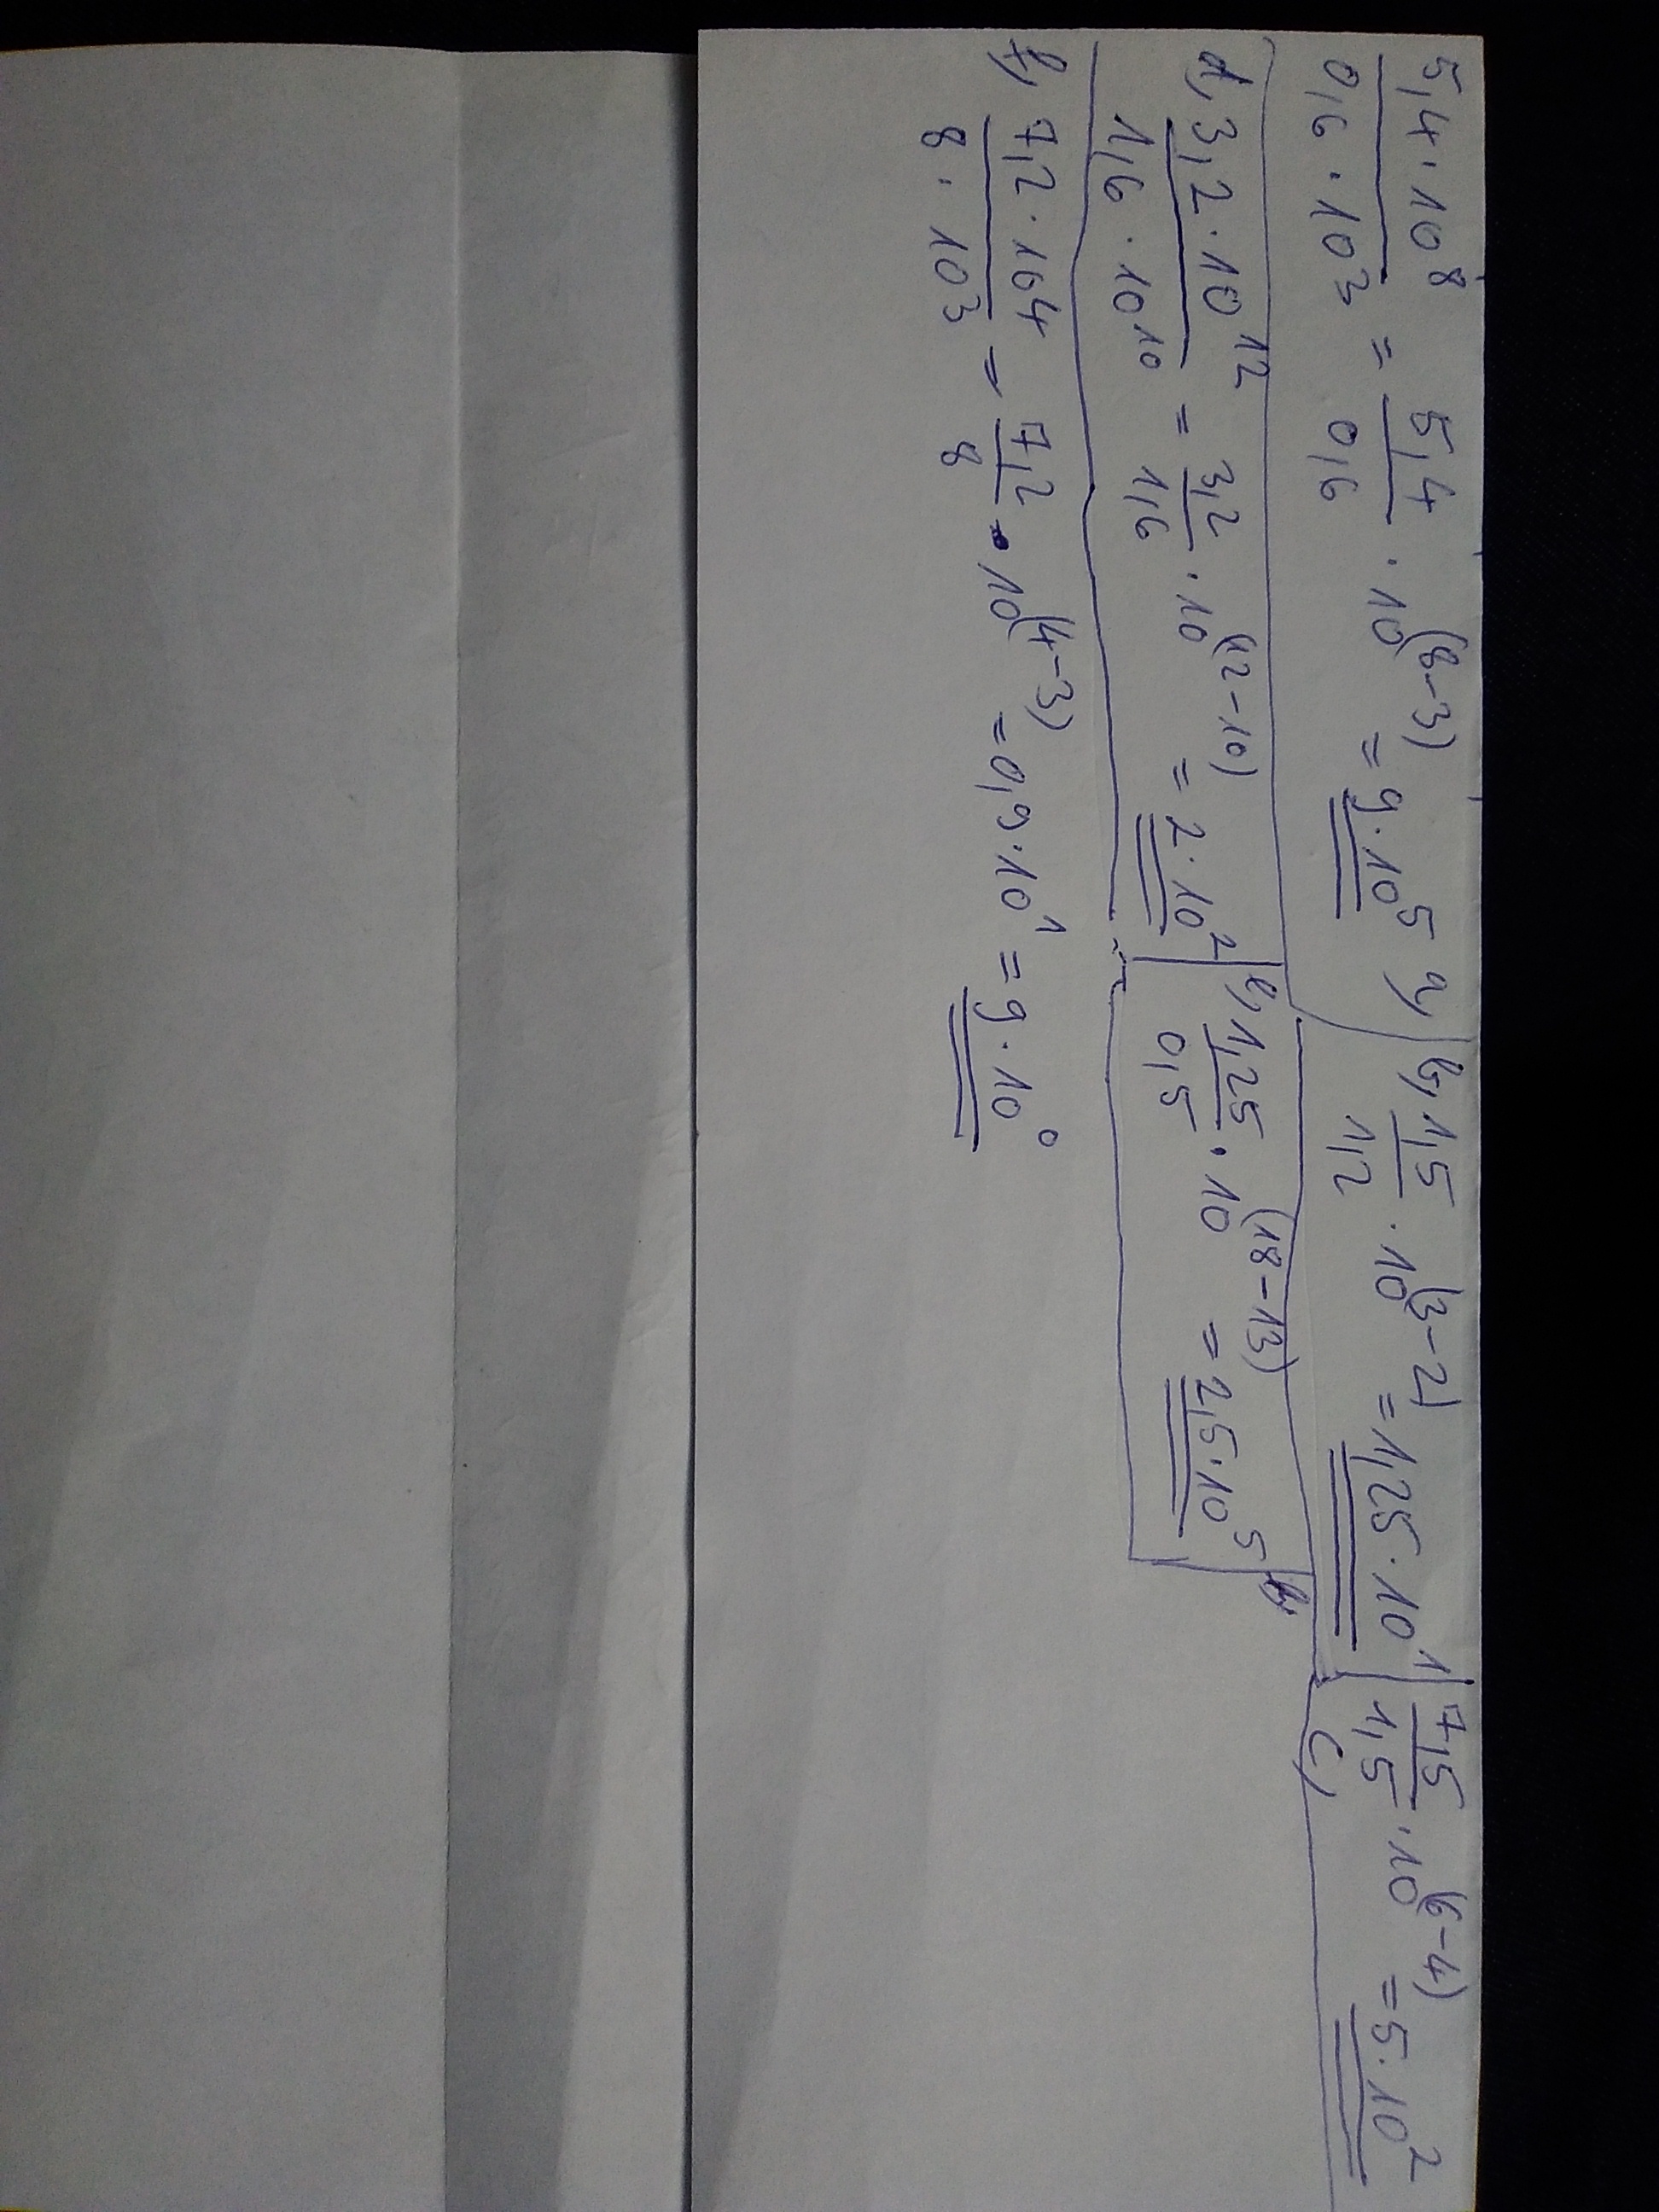 5,4·10⁸/0,6·10³ = 5,4/0,6 · 10⁽⁸⁻³⁾ = 9·10⁵ a,
b, 1,5/1,2 · 10⁽³⁻²⁾ = 1,25·10¹
7,5/1,5 · 10⁽⁶⁻⁴⁾ = 5·10² c,
d, 3,2·10¹²/1,6·10¹⁰ = 3,2/1,6 · 10⁽¹²⁻¹⁰⁾ = 2·10²
e, 1,25/0,5 · 10⁽¹⁸⁻¹³⁾ = 2,5·10⁵
f, 7,2·10⁴/8·10³ = 7,2/8 · 10⁽⁴⁻³⁾ = 0,9·10¹ = 9·10⁰